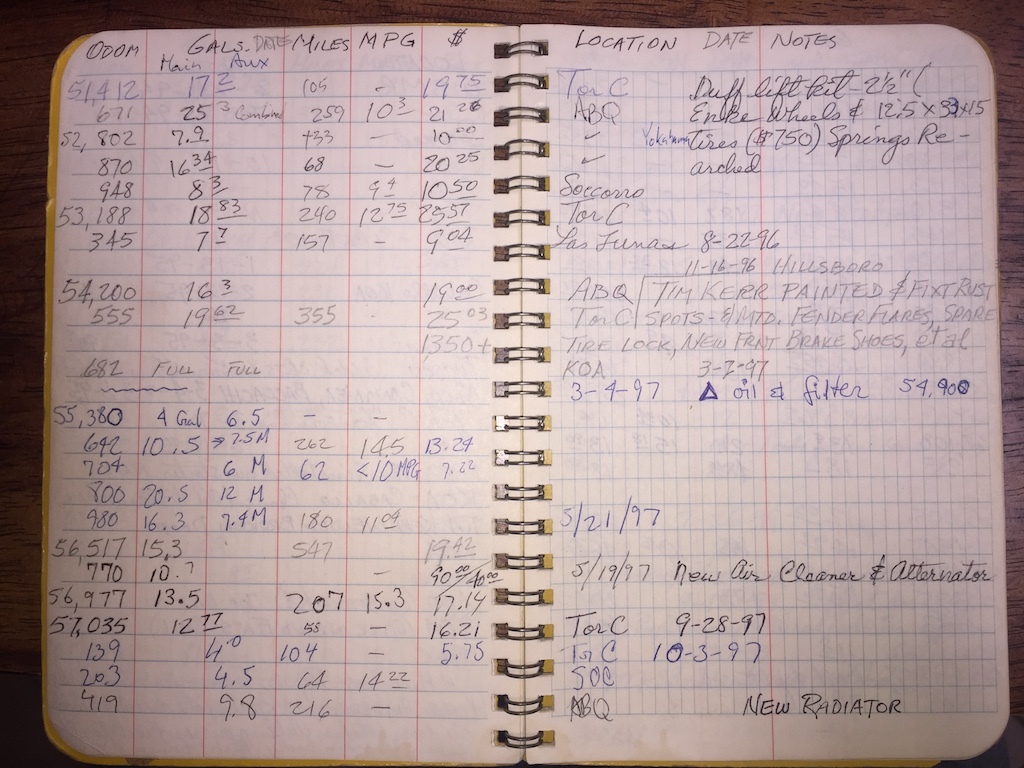 ODOM GALS. DATE MILES MPG $ LOCATION DATE NOTES
Main Aux
51,412 17 2 105 - 19 75 T or C Duff lift kit - 2½" (
671 25 3 Combined 259 10 3 21 26 ABQ Enke Wheels & 12.5 x 33x15
52,802 7.9 +33 - 10 00 ✓ Yokahama Tires ($750) Springs Re-
870 16 34 68 - 20 25 ✓ arched
948 8 3 78 9 4 10 50 Soccorro
53,188 18 83 240 12 75 25 57 T or C
345 7 7 157 - 9 04 Las Lunas 8-22-96
11-16-96 HILLSBORO
54,200 16 3 19 00 ABQ TIM KERR PAINTED & FIXT RUST
555 19 62 355 25 03 T or C SPOTS - & MTD. FENDER FLARES, SPARE
1350+ TIRE LOCK, NEW FRNT BRAKE SHOES, et al
682 FULL FULL KOA 3-7-97
3-4-97 Δ oil & filter 54,900
55,380 4 Gal 6.5 - -
642 10.5 → 7.5 M 262 14.5 13.24
704 6 M 62 <10 MPG 7.22
800 20.5 12 M
980 16.3 7.4 M 180 11 04 5/21/97
56,517 15.3 547 19 42
770 10.7 - 90 00/40 00 5/19/97 New Air Cleaner & Alternator
56,977 13.5 207 15.3 17.14
57,035 12 77 58 - 16.21 T or C 9-28-97
139 4.0 104 - 5.75 T or C 10-3-97
203 4.5 64 14 22 SOC
419 9.8 216 - ABQ NEW RADIATOR